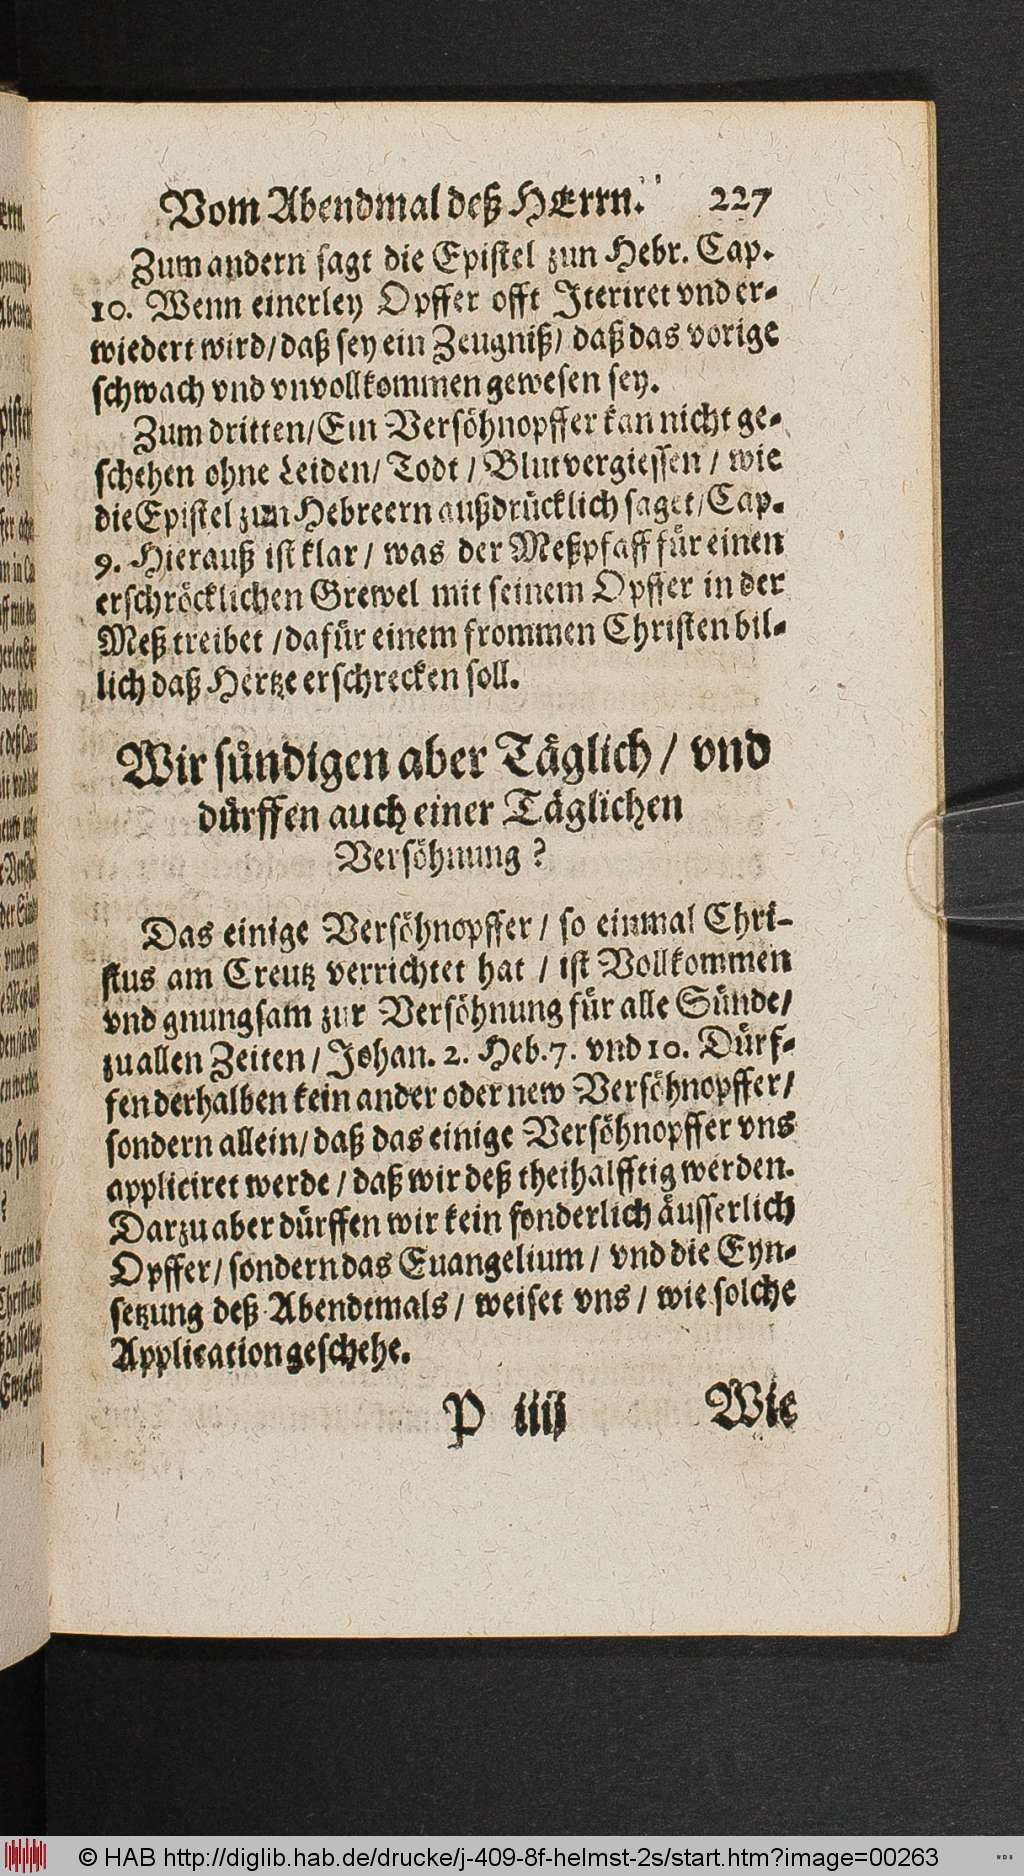 Vom Abendmal deß HErrn. 227
Zum andern sagt die Epistel zun Hebr. Cap.
10. Wenn einerley Opffer offt Iteriret vnd er-
wiedert wird/ daß sey ein Zeugniß/ daß das vorige
schwach vnd vnvollkommen gewesen sey.
Zum dritten/ Ein Versöhnopffer kan nicht ge-
schehen ohne Leiden/ Todt/ Blutvergiessen/ wie
die Epistel zun Hebreern außdrücklich saget/ Cap.
9. Hierauß ist klar/ was der Meßpfaff für einen
erschröcklichen Grewel mit seinem Opffer in der
Meß treibet/ dafür einem frommen Christen bil-
lich daß Hertze erschrecken soll.
Wir sündigen aber Täglich/ vnd
dürffen auch einer Täglichen
Versöhnung?
Das einige Versöhnopffer/ so einmal Chri-
stus am Creutz verrichtet hat/ ist Vollkommen
vnd gnungsam zur Versöhnung für alle Sünde/
zu allen Zeiten/ Johan. 2. Heb. 7. vnd 10. Dürf-
fen derhalben kein ander oder new Versöhnopffer/
sondern allein/ daß das einige Versöhnopffer vns
appliciret werde/ daß wir deß theihalfftig werden.
Darzu aber dürffen wir kein sonderlich äusserlich
Opffer/ sondern das Euangelium/ vnd die Eyn-
setzung deß Abendtmals/ weiset vns/ wie solche
Application geschehe.
P iiij Wie
© HAB http://diglib.hab.de/drucke/j-409-8f-helmst-2s/start.htm?image=00263